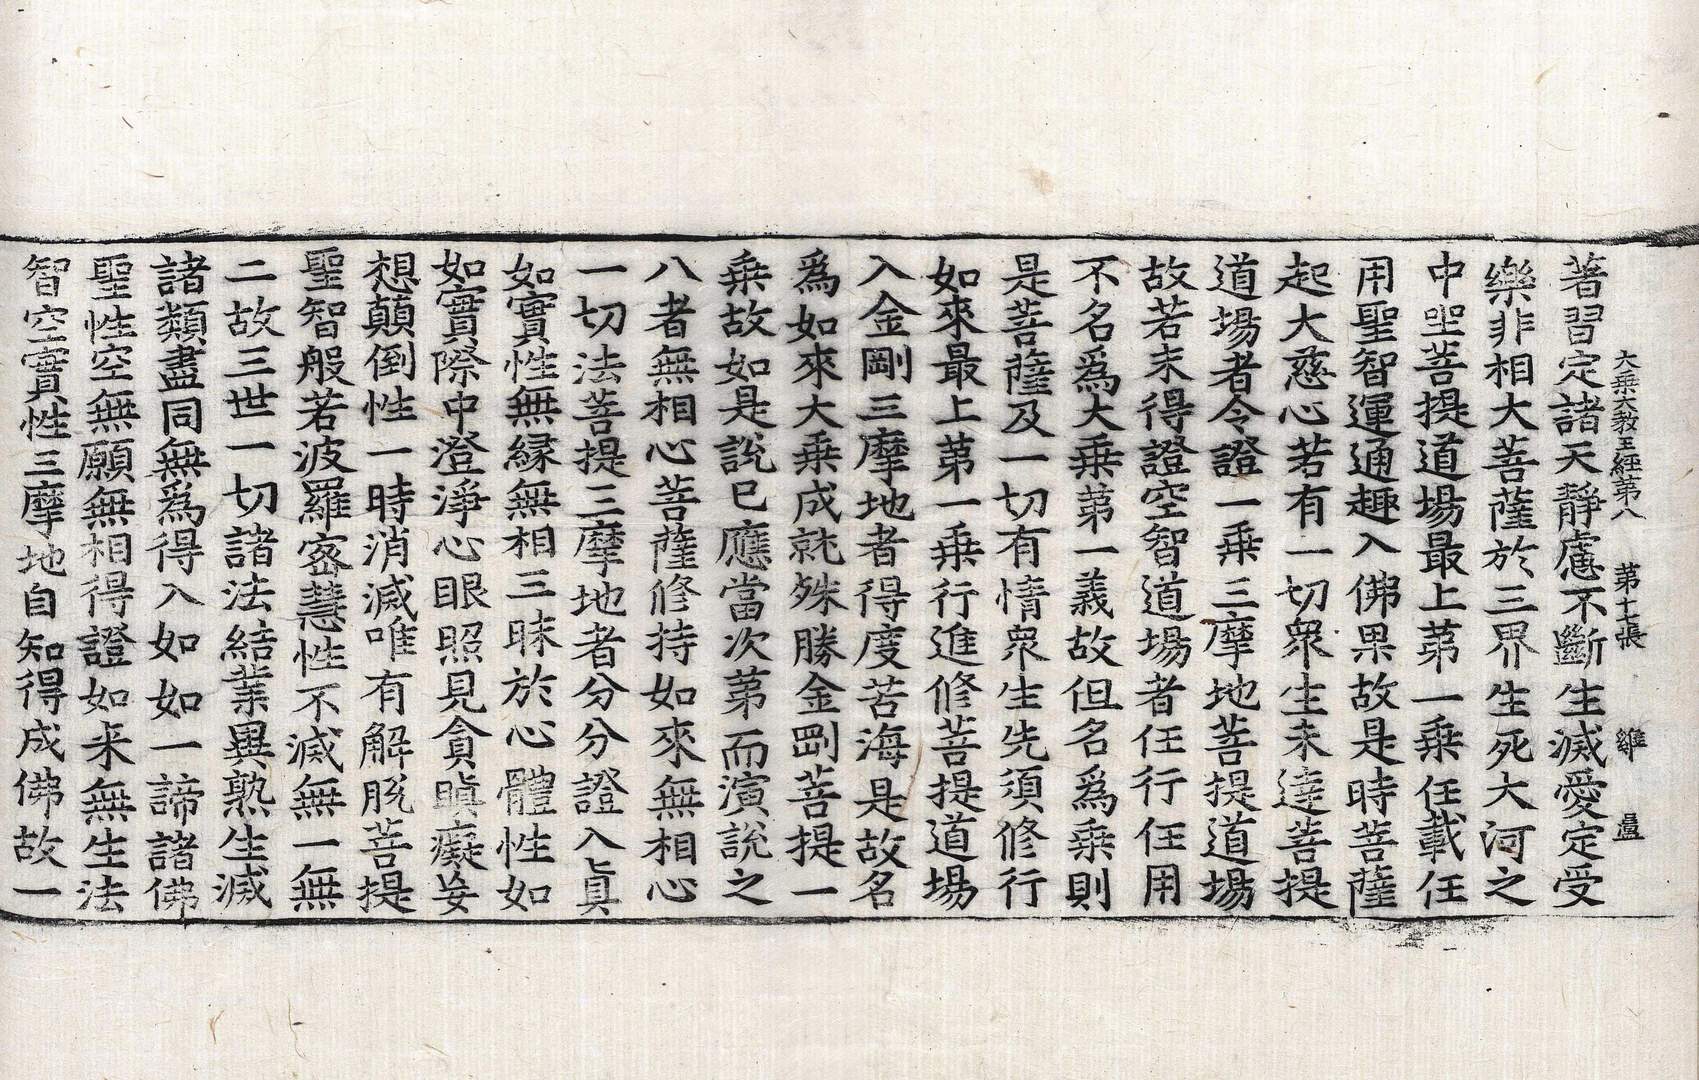 大乗大教王経第八 第十七張 維 量
著習定諸天靜慮不斷生滅愛定受
樂非相大菩薩於三界生死大河之
中坐菩提道場最上第一乗任載任
用聖智運通趣入佛果故是時菩薩
起大慈心若有一切衆生未達菩提
道場者令證一乗三摩地菩提道場
故若未得證空智道場者任行任用
不名爲大乗第一義故但名爲乗則
是菩薩及一切有情衆生先須修行
如來最上第一乗行進修菩提道場
入金剛三摩地者得度苦海是故名
爲如來大乗成就殊勝金剛菩提一
乗故如是說已應當次第而演說之
八者無相心菩薩修持如來無相心
一切法菩提三摩地者分分證入真
如實性無縁無相三昧於心體性如
如實際中澄淨心眼照見貪瞋癡妄
想顛倒性一時消滅唯有解脫菩提
聖智般若波羅密慧性不滅無一無
二故三世一切諸法結業異熟生滅
諸類盡同無爲得入如如一諦諸佛
聖性空無願無相得證如来無生法
智空實性三摩地自知得成佛故一